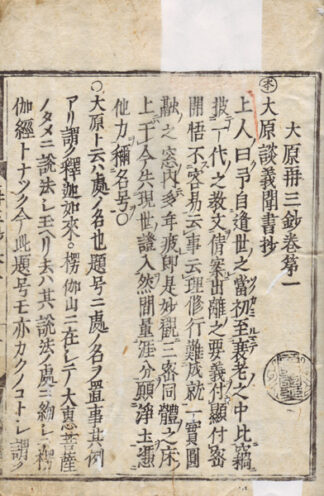 大原冊三鈔卷第一
本 大原談義聞書抄
上人曰予自逢世之當初至衰老之中比竊
披一代之教文倩案出離之要義付顯付密
開悟不容易云事云理修行難成就一實圓
融之窓内多年疲即是妙觀三密同體之床
上于今失現世證入然間量涯分願淨土憑
他力稱名号〇
〇大原ト云ハ處ノ名也題号ニ處ノ名ヲ置事其例
アリ謂ク釋迦如來。楞伽山ニ在シテ大惠菩薩
ノタメニ說法シ玉ヘリ去ハ其說法ノ處ニ約シ楞
伽經トナツク今此題号モ亦カクノコトシ謂ク